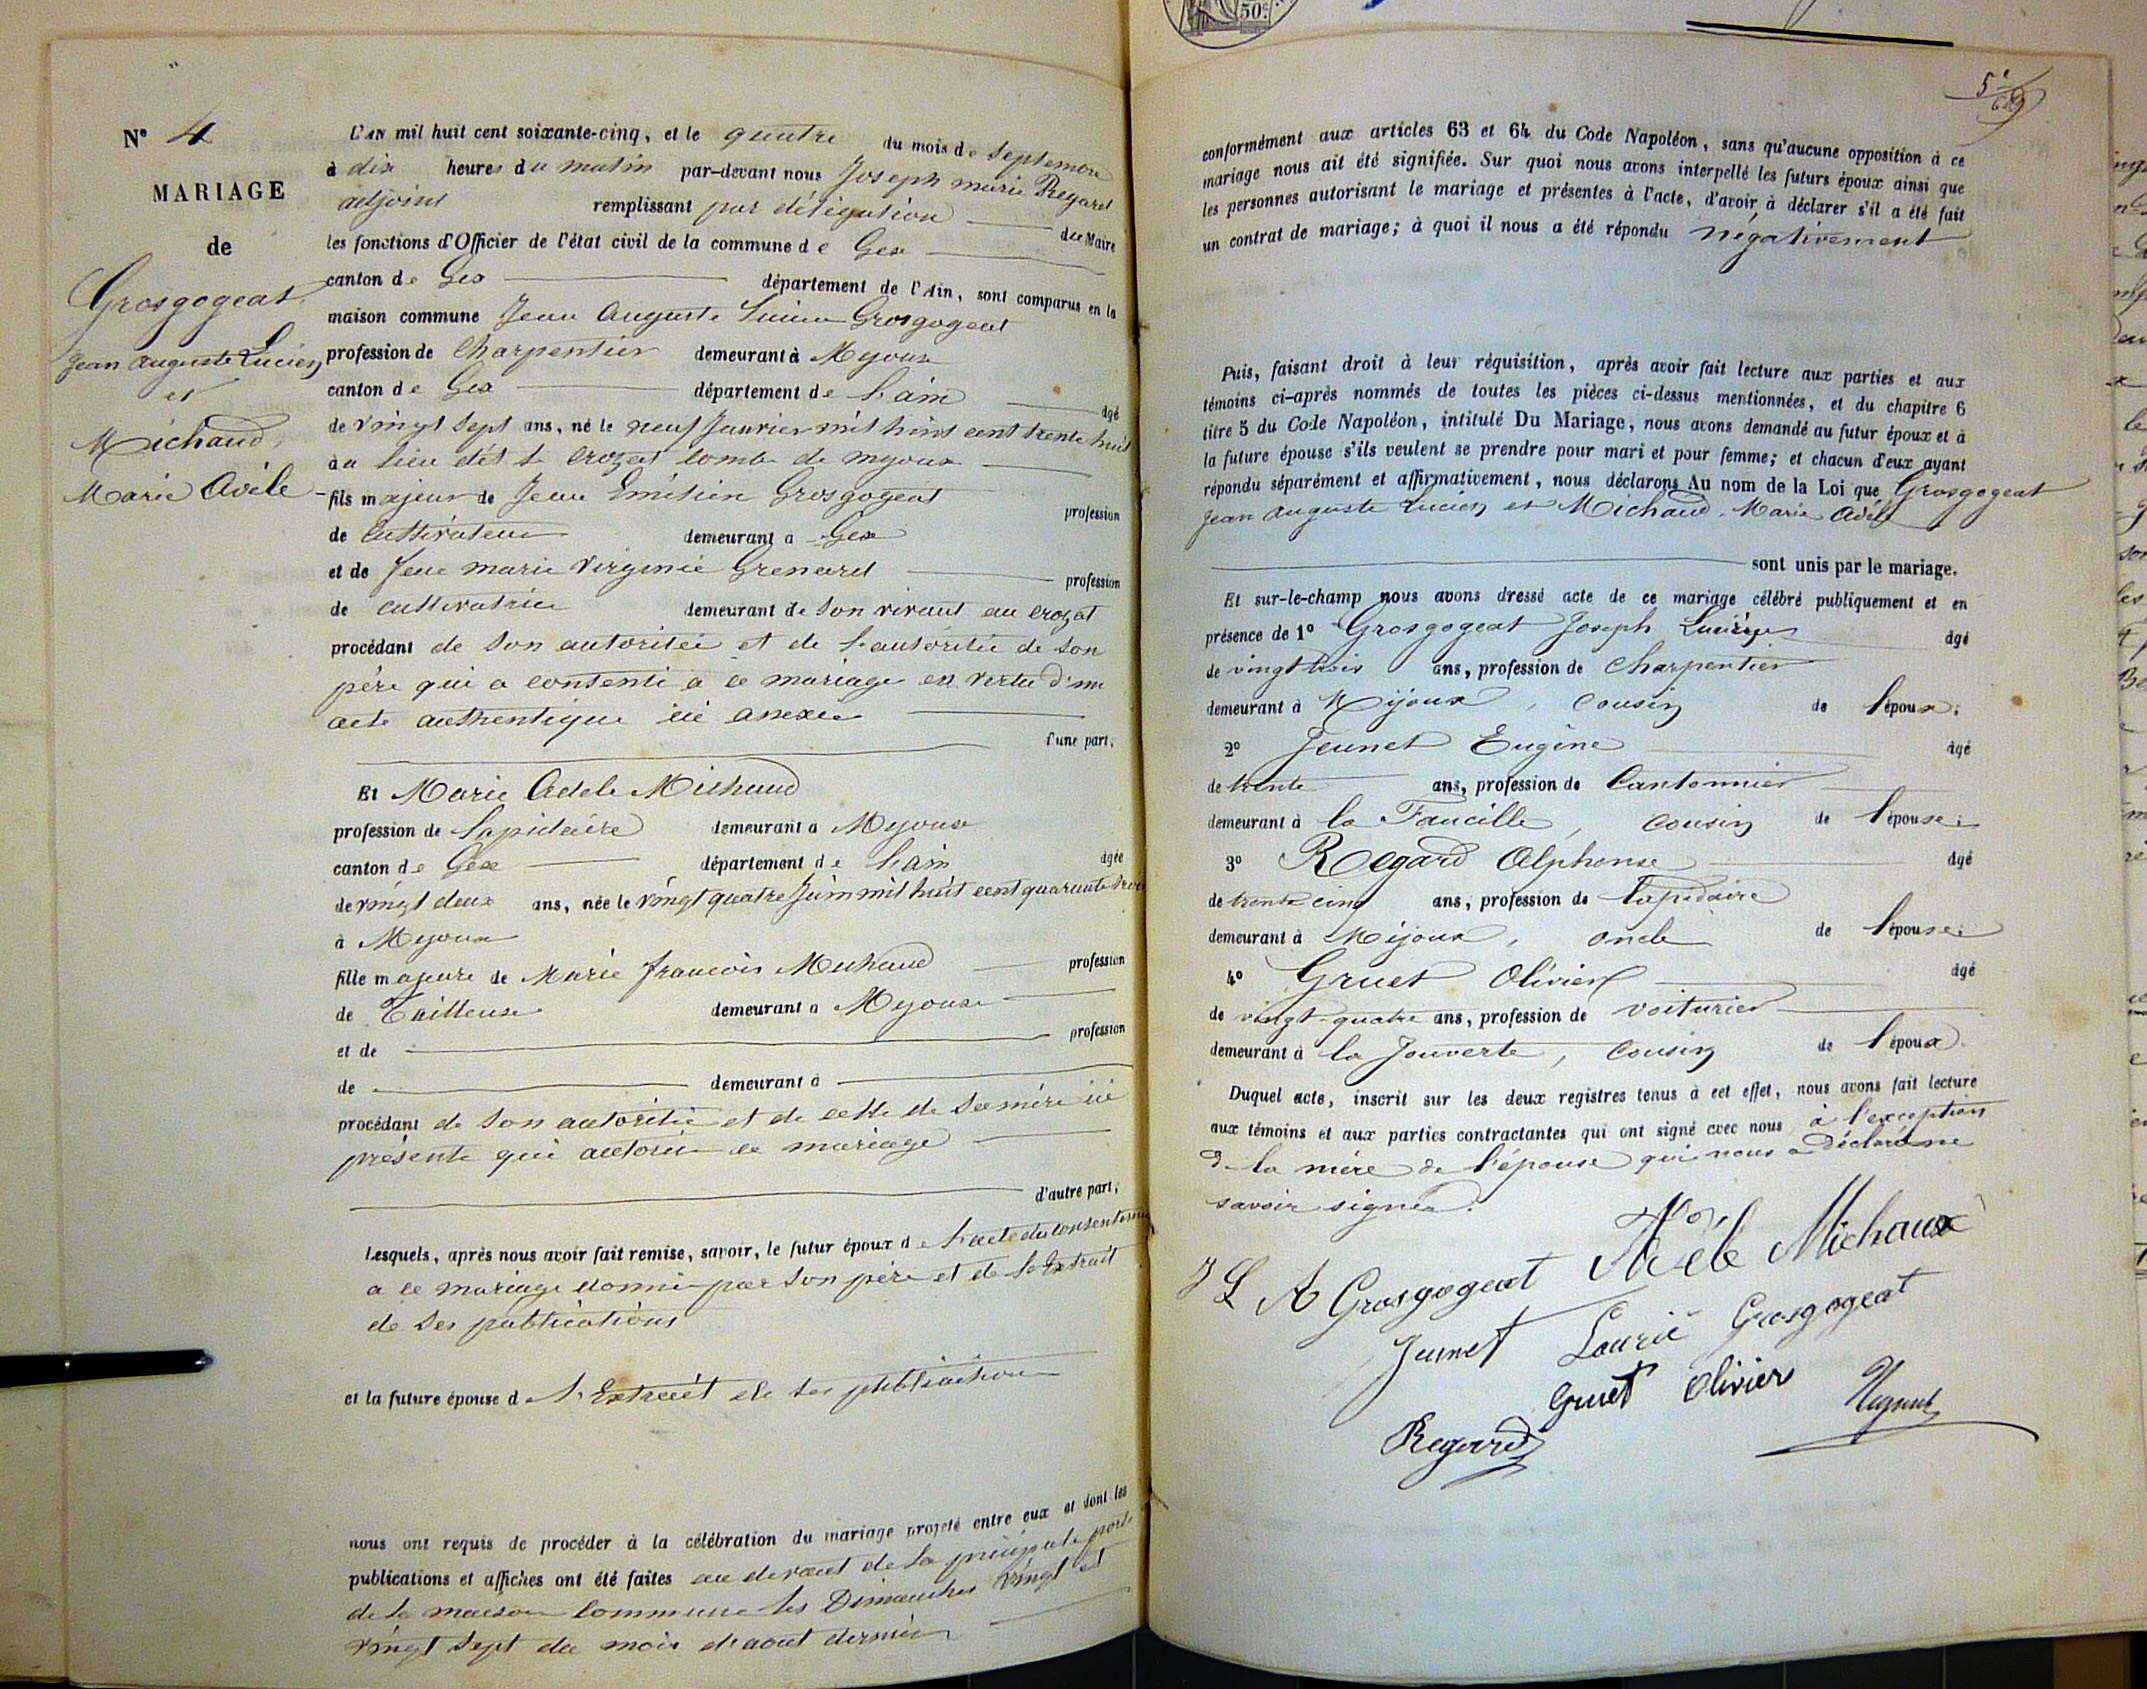 Nº 4
MARIAGE
de
Grosgogeat
Jean Auguste Lucien
et
Michaud,
Marie Adèle
L'AN mil huit cent soixante-cinq, et le quatre du mois de septembre
à dix heures du matin par-devant nous Joseph marie Regard
adjoint remplissant par délégation du Maire
les fonctions d'Officier de l'état civil de la commune de Gex
canton de Gex département de l'Ain, sont comparus en la
maison commune Jean Auguste Lucien Grosgogeat
profession de Charpentier demeurant à Mijoux
canton de Gex département de l'ain âgé
de vingt sept ans, né le neuf Janvier mil huit cent trente huit
au lieu dit le Crozat Combe de mijoux
fils majeur de Jean Emilien Grosgogeat profession
de Cultivateur demeurant à Gex
et de Jeue marie Virginie Grenard profession
de cultivatrice demeurant de son vivant au Crozat
procédant de son autoritée et de l'autoritée de son
père qui a consenti à ce mariage en vertu d'un
acte authentique ici anexée
d'une part,
Et Marie Adele Michaud
profession de Lapidaire demeurant à Mijoux
canton de Gex département de l'ain âgée
de vingt deux ans, née le vingt quatre Juin mil huit cent quarante trois
à Mijoux
fille majeure de Marie françois Michaud profession
de Tailleuse demeurant à Mijoux
et de profession
de demeurant à
procédant de son autoritée et de celle de sa mère ici
présente qui autorise ce mariage
d'autre part,
Lesquels, après nous avoir fait remise, savoir, le futur époux de l'acte du consentement
a ce mariage donné par son père et de l'Extrait
de ses publications
et la future épouse d l'Extrait de ses publications
nous ont requis de procéder à la célébration du mariage projeté entre eux et dont les
publications et affiches ont été faites au devant de la principale porte
de la maison Commune les Dimanches vingt et
vingt sept du mois d'aout dernier
5e
conformément aux articles 63 et 64 du Code Napoléon, sans qu'aucune opposition à ce
mariage nous ait été signifiée. Sur quoi nous avons interpellé les futurs époux ainsi que
les personnes autorisant le mariage et présentes à l'acte, d'avoir à déclarer s'il a été fait
un contrat de mariage; à quoi il nous a été répondu négativement
Puis, faisant droit à leur réquisition, après avoir fait lecture aux parties et aux
témoins ci-après nommés de toutes les pièces ci-dessus mentionnées, et du chapitre 6
titre 5 du Code Napoléon, intitulé Du Mariage, nous avons demandé au futur époux et à
la future épouse s'ils veulent se prendre pour mari et pour femme; et chacun d'eux ayant
répondu séparément et affirmativement, nous déclarons Au nom de la Loi que Grosgogeat
Jean Auguste Lucien et Michaud, Marie Adèle
sont unis par le mariage.
Et sur-le-champ nous avons dressé acte de ce mariage célébré publiquement et en
présence de 1º Grosgogeat Joseph âgé
de vingt trois ans, profession de Charpentier
demeurant à Mijoux, Cousin de l'époux;
2º Jeunet Eugène âgé
de trente ans, profession de Cantonnier
demeurant à la Faucille, cousin de l'épouse;
3º Regard Alphonse âgé
de trente cinq ans, profession de lapidaire
demeurant à Mijoux, oncle de l'épouse;
4º Gruet Olivier âgé
de vingt-quatre ans, profession de voiturier
demeurant à la Jouverte, Cousin de l'époux.
Duquel acte, inscrit sur les deux registres tenus à cet effet, nous avons fait lecture
aux témoins et aux parties contractantes qui ont signé avec nous à l'exception
de la mère de l'épouse qui nous a déclaré ne
savoir signer.
J L A Grosgogeat Adèle Michaux
Jeunet Grosgogeat
Gruet Olivier
Regard
50c